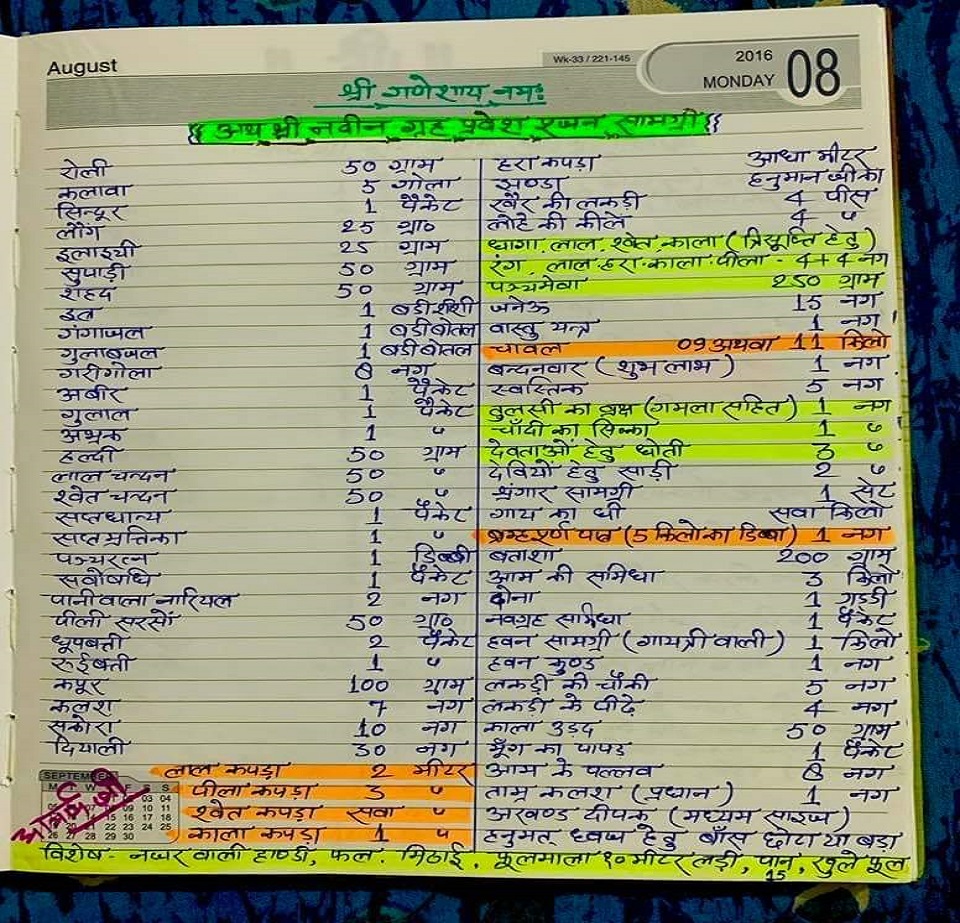 August
Wk-33 / 221-145
2016
MONDAY 08
श्री गणेशाय नमः
{{ अथ श्री नवीन गृह प्रवेश पूजन सामग्री }}
रोली 50 ग्राम
कलावा 5 गोला
सिन्दूर 1 पैकेट
लौंग 25 ग्रा०
इलाइची 25 ग्राम
सुपाड़ी 50 ग्राम
शहद 50 ग्राम
इत्र 1 बडी शीशी
गंगाजल 1 बडी बोतल
गुलाबजल 1 बडी बोतल
गरीगोला 8 नग
अबीर 1 पैकेट
गुलाल 1 पैकेट
अभ्रक 1 "
हल्दी 50 ग्राम
लाल चन्दन 50 "
श्वेत चन्दन 50 "
सप्तधान्य 1 पैकेट
सप्तमृत्तिका 1 "
पञ्चरत्न 1 डिब्बी
सर्वोषधि 1 पैकेट
पानीवाला नारियल 2 नग
पीली सरसों 50 ग्रा०
धूपबत्ती 2 पैकेट
रूईबत्ती 1 "
कपूर 100 ग्राम
कलश 7 नग
सकोरा 10 नग
दियाली 30 नग
लाल कपड़ा 2 मीटर
पीला कपड़ा 3 "
श्वेत कपड़ा सवा "
काला कपड़ा 1 "
हरा कपड़ा आधा मीटर
झण्डा हनुमान जी का
खैर की लकड़ी 4 पीस
लोहे की कीले 4 "
धागा, लाल, श्वेत, काला ( त्रिसूत्ति हेतु )
रंग, लाल, हरा, काला, पीला - 4+4 नग
पञ्चमेवा 250 ग्राम
जनेऊ 15 नग
वास्तु यन्त्र 1 नग
चावल 09 अथवा 11 किलो
बन्दनवार ( शुभ लाभ ) 1 नग
स्वस्तिक 5 नग
तुलसी का वृक्ष (गमला सहित) 1 नग
चाँदी का सिक्का 1 "
देवताओं हेतु धोती 3 "
देवियों हेतु साड़ी 2 "
श्रंगार सामग्री 1 सेट
गाय का घी सवा किलो
ब्रम्हपूर्ण पात्र (5 किलो का डिब्बा) 1 नग
बताशा 200 ग्राम
आम की समिधा 3 किलो
दोना 1 गड्डी
नवग्रह समिधा 1 पैकेट
हवन सामग्री ( गायत्री वाली ) 1 किलो
हवन कुण्ड 1 नग
लकड़ी की चौंकी 5 नग
लकड़ी के पीढ़े 4 नग
काला उड़द 50 ग्राम
मूँग का पापड़ 1 पैकेट
आम के पल्लव 8 नग
ताम्र कलश ( प्रधान ) 1 नग
अखण्ड दीपक ( मध्यम साइज )
हनुमत् ध्वज हेतु बाँस छोटा या बड़ा
SEPTEMBER
विशेष - नजर वाली हाण्डी, फल, मिठाई, फूलमाला १० मीटर लड़ी, पान, खुले फूल
15